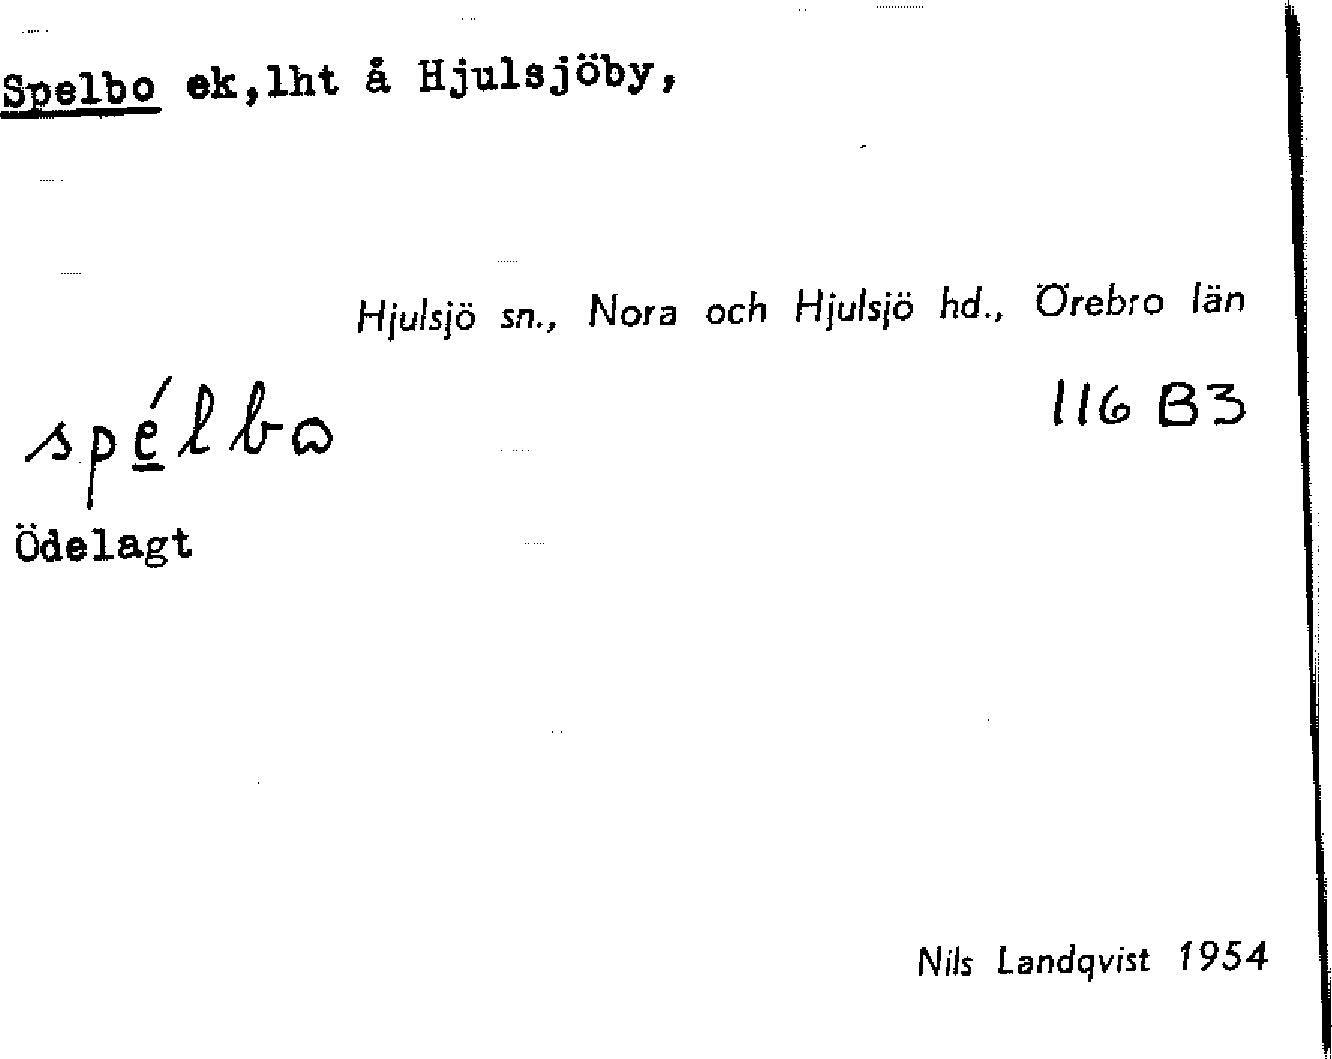 Spelbo ek,lht å Hjulsjöby,
Hjulsjö sn., Nora och Hjulsjö hd., Örebro län
116 B3
spé̲lbɷ
Ödelagt
Nils Landqvist 1954